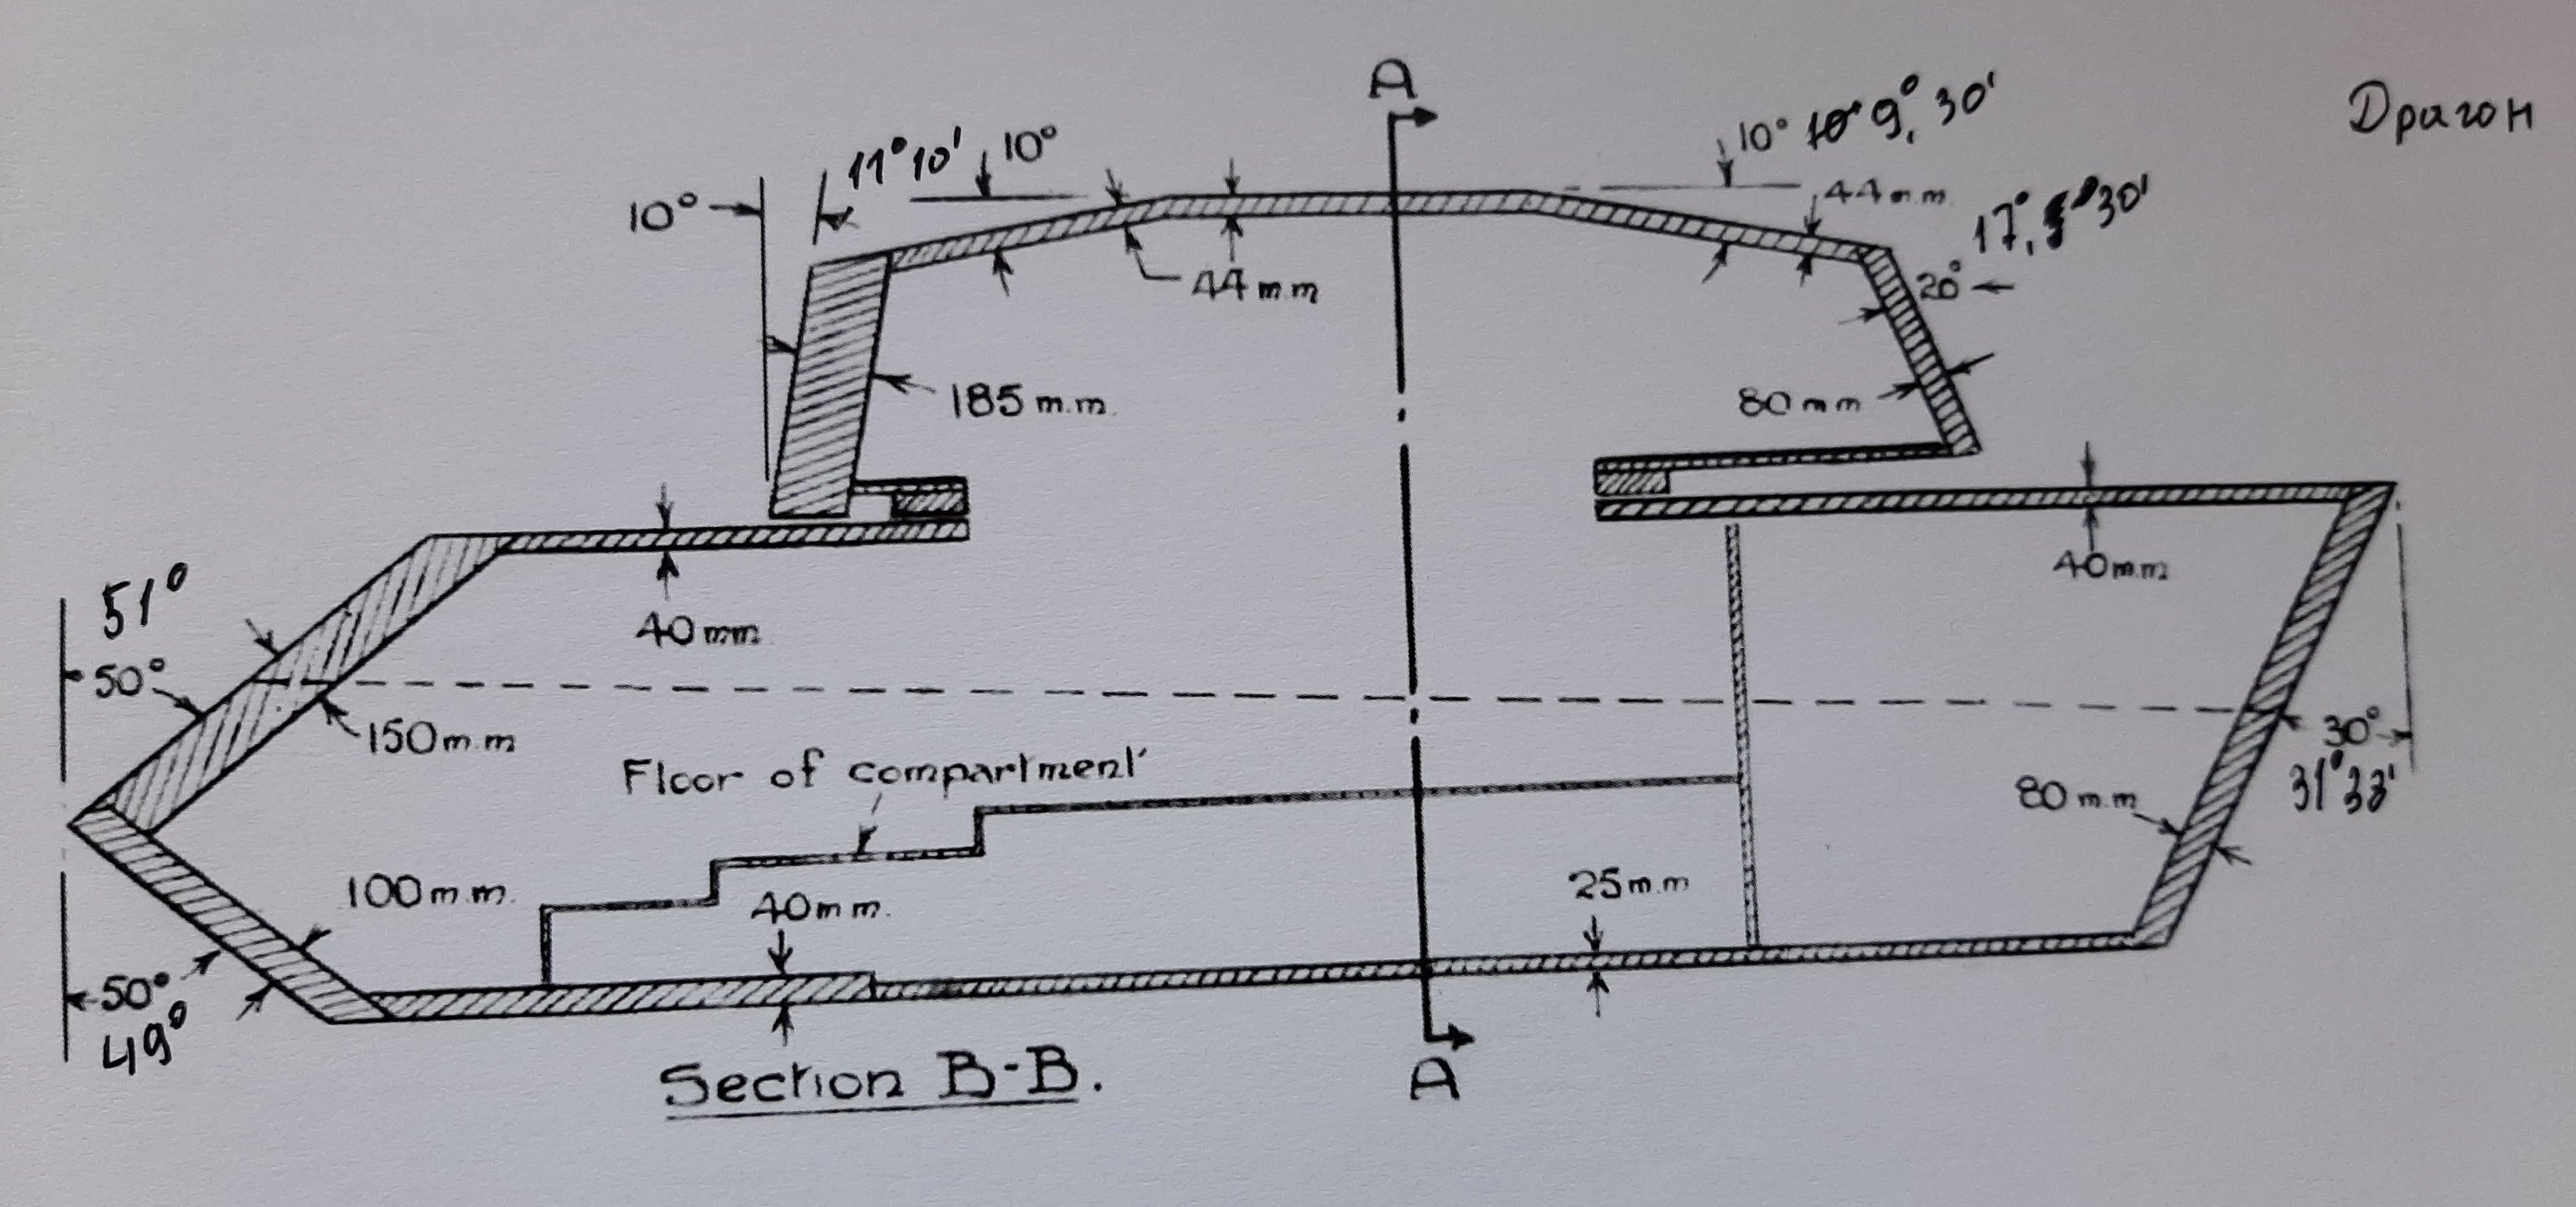 A
Драгон
11°10' 10°
10° 10° 9°, 30'
10°
44 m.m
17°, 30'
44 m.m
20°
185 m.m.
80 m m
51°
40 m.m.
40 m m
50°
150 m.m
30°
Floor of compartment
31°33'
80 m.m
100 m.m.
40 m m.
25 m.m
50°
49°
Section B-B.
A